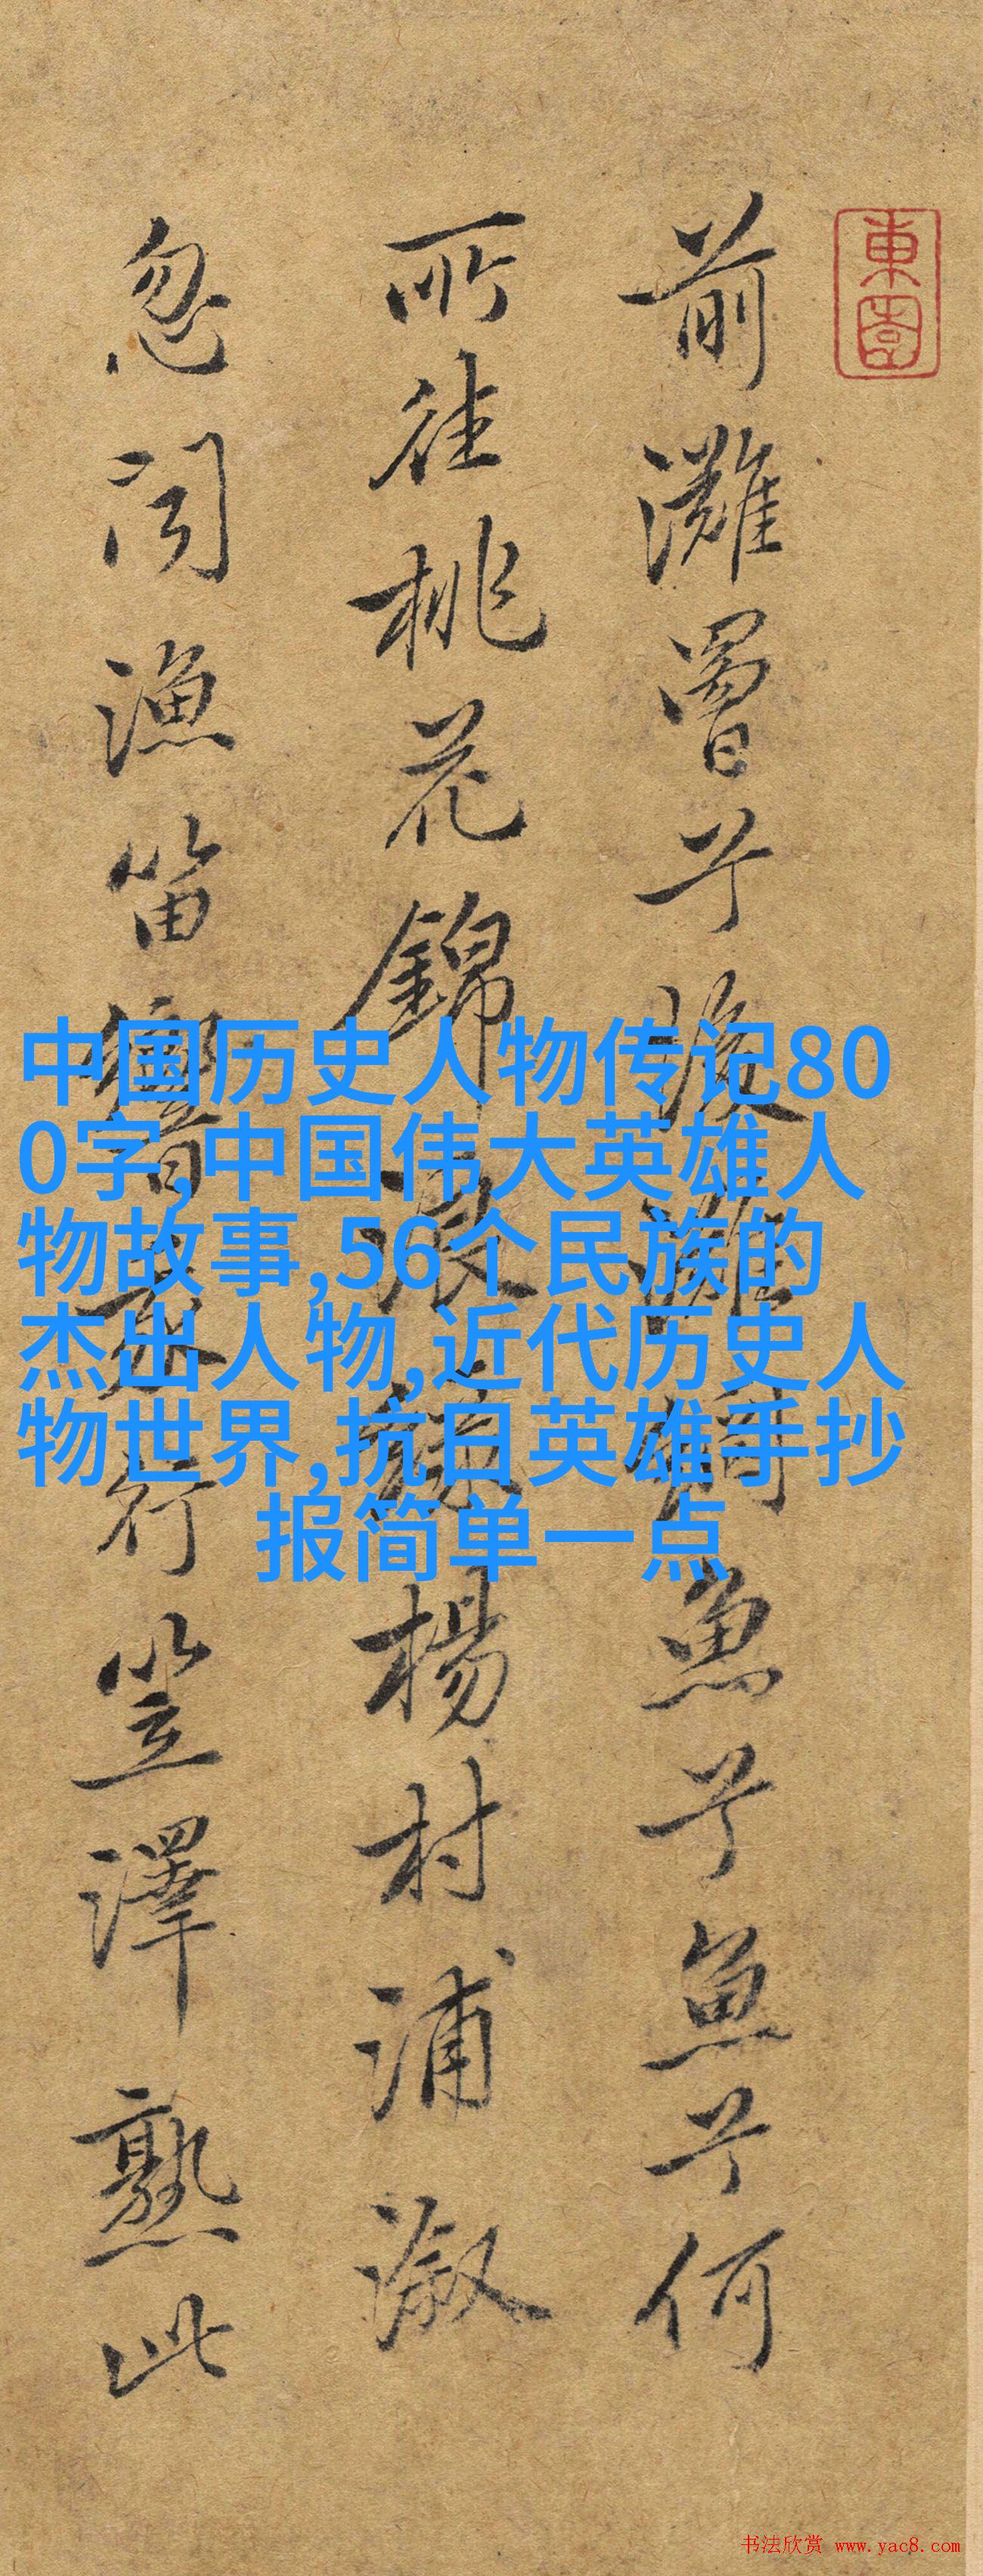 東園
前灘罾兮後灘網魚兮魚兮何
所往桃花錦浪綠楊村浦溆
忽聞漁笛響我行笠澤熟此
中国历史人物传记80
0字,中国伟大英雄人
物故事,56个民族的
杰出人物,近代历史人
物世界,抗日英雄手抄
报简单一点
书法欣赏 www.yac8.com